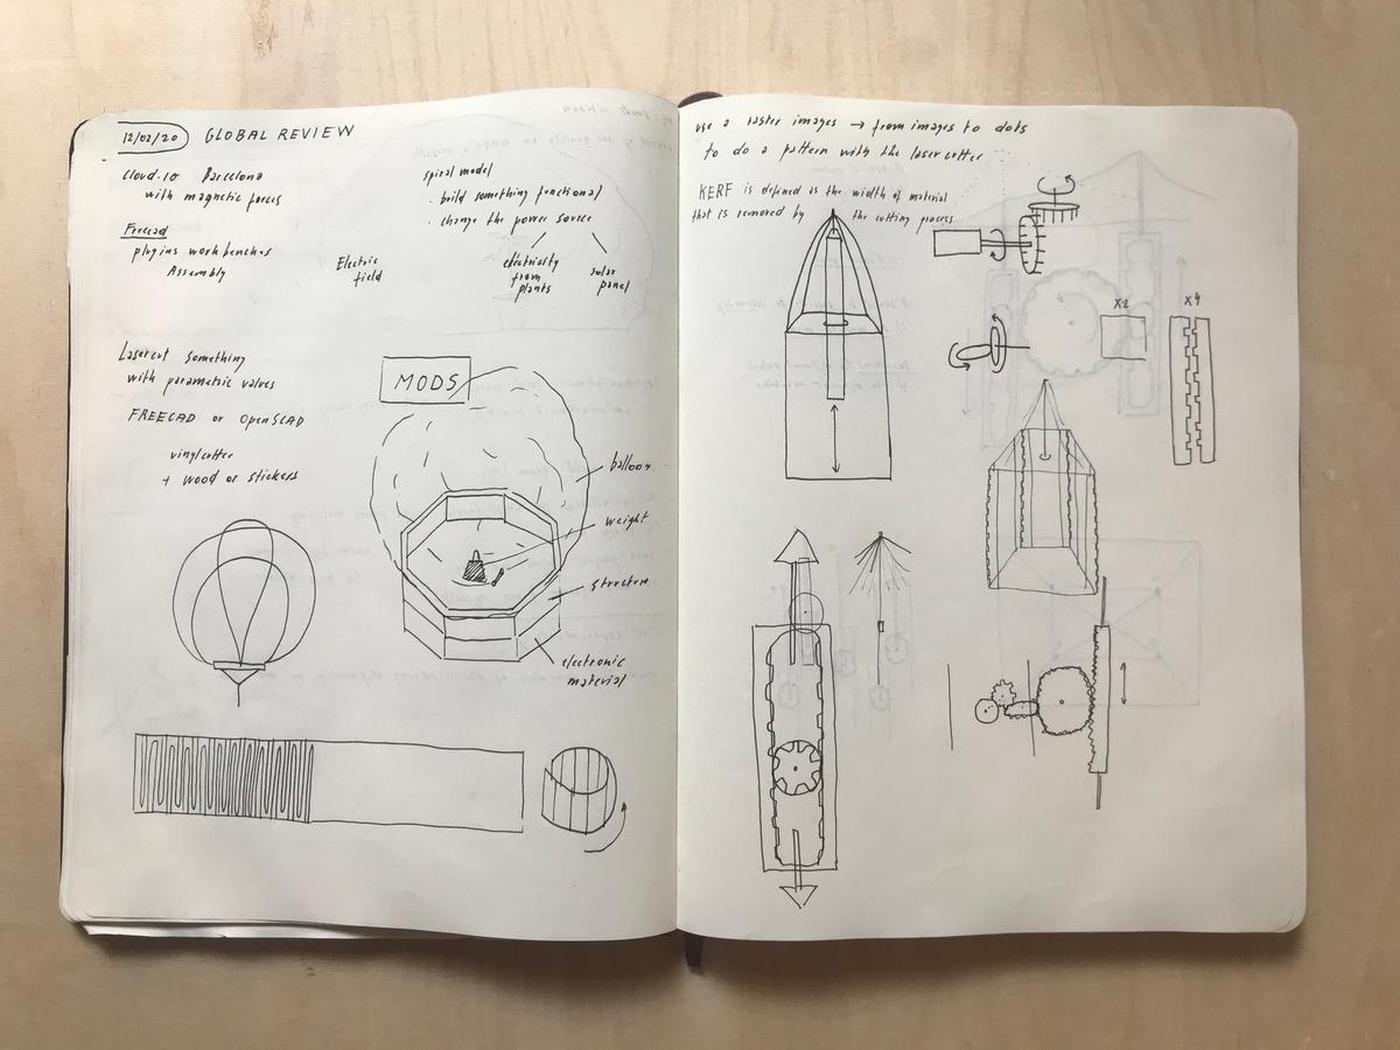 12/02/20 GLOBAL REVIEW
Cloud.io Barcelona
with magnetic forces
Freecad
plugins workbenches
Assembly
Electric
field
spiral model
. build something functional
. change the power source
electricity
from
plants
solar
panel
Lasercut something
with parametric values
FREECAD or OpenSCAD
vinylcutter
+ wood or stickers
MODS
balloon
weight
structure
electronic
material
use a raster images → from images to dots
to do a pattern with the laser cutter
KERF is defined as the width of material
that is removed by the cutting process
x2
x4